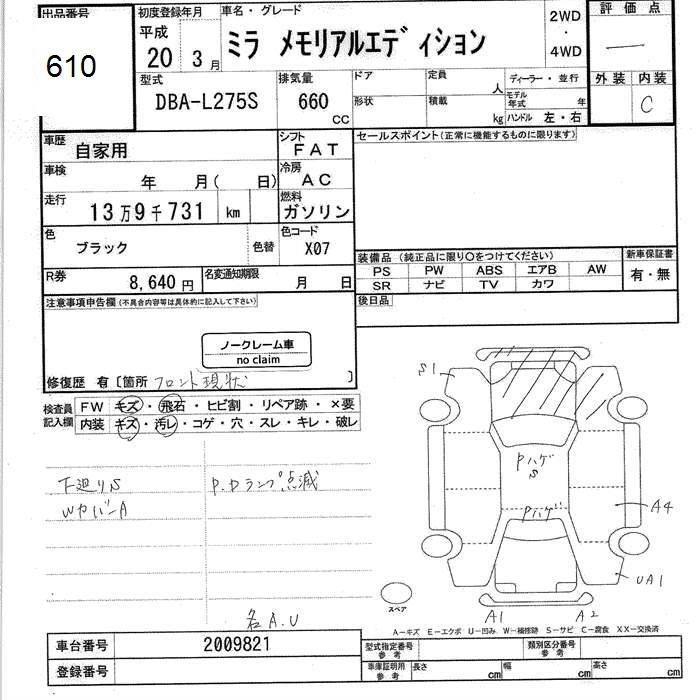 出品番号 初度登録年月 車名・グレード 2WD ・ 4WD 評価点
610 平成 20 3月 ミラ メモリアルエディション —
型式 排気量 ドア 定員 人 ディーラー・並行 外装 内装
DBA-L275S 660 CC 形状 積載 kg モデル年式 年 ハンドル 左・右 C
車歴 自家用 シフト FAT セールスポイント(正常に機能するものに限ります)
車検 年 月( 日) 冷房 AC
走行 13万9千731 km 燃料 ガソリン
色 ブラック 色替 色コード X07
装備品(純正品に限り〇をつけてください) 新車保証書
PS PW ABS エアB AW 有・無
SR ナビ TV カワ
R券 8,640円 名変通知期限 月 日
後日品
注意事項申告欄(不具合内容等は具体的に記入して下さい)
ノークレーム車
no claim
修復歴 有〔箇所 フロント現状 〕
検査員 FW キズ・飛石・ヒビ割・リペア跡・×要
記入欄 内装 キズ・汚レ・コゲ・穴・スレ・キレ・破レ
S1
Pハゲ
S
Pハゲ
A4
UA1
下廻りS P.Dランプ点滅
WカバーA
スペア
各A.U
A1 A2
A—キズ E—エクボ U—凹み W—補修跡 S—サビ C—腐食 XX—交換済
車台番号 2009821 型式指定番号 参考 類別区分番号 参考
登録番号 車庫証明用 参考 長さ cm 幅 cm 高さ cm